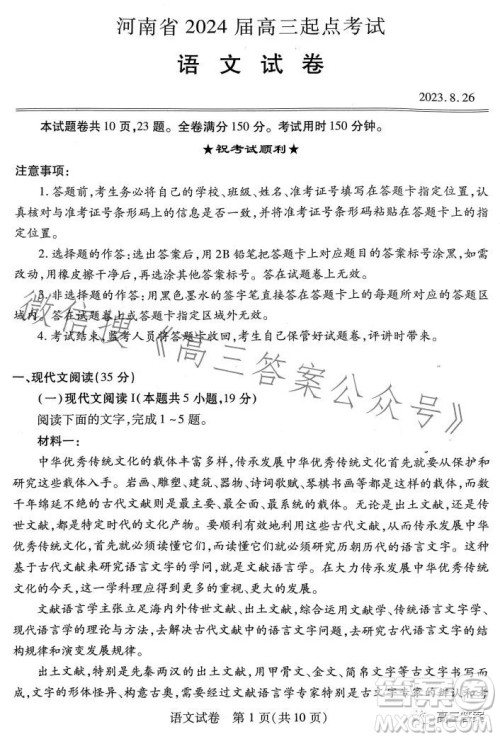 河南省 2024 届高三起点考试
语 文 试 卷
2023. 8. 26
本试题卷共 10 页,23 题。全卷满分 150 分。考试用时 150 分钟。
★祝考试顺利★
注意事项:
1. 答题前,考生务必将自己的学校、班级、姓名、准考证号填写在答题卡指定位置,认
真核对与准考证号条形码上的信息是否一致,并将准考证号条形码粘贴在答题卡上的指
定位置。
2. 选择题的作答:选出答案后,用 2B 铅笔把答题卡上对应题目的答案标号涂黑,如需
改动,用橡皮擦干净后,再选涂其他答案标号。答在试题卷上无效。
3. 非选择题的作答:用黑色墨水的签字笔直接答在答题卡上的每题所对应的答题区
域内。答在试题卷上或答题卡指定区域外无效。
4. 考试结束,监考人员将答题卡收回,考生自己保管好试题卷,评讲时带来。
微信搜《高三答案公众号》
一、现代文阅读(35 分)
(一)现代文阅读 I(本题共 5 小题,19 分)
阅读下面的文字,完成 1~5 题。
材料一:
中华优秀传统文化的载体丰富多样,传承发展中华优秀传统文化首先就要从保护和
研究这些载体入手。岩画、雕塑、建筑、器物、诗词歌赋、琴棋书画等都是这样的载体,而数
千年绵延不绝的古代文献则是最主要、最全面、最系统的载体。无论是出土文献,还是传
世文献,都是特定时代的文化产物。要顺利有效地利用这些文献,从中传承发展中华优
秀传统文化,首先就必须读懂它们,而读懂它们就必须研究历朝历代的语言文字。这种
基于古代文献来研究语言文字的学问,就是文献语言学。在传承发展中华优秀传统文
化的今天,这一学科应得到更高的重视、更大的发展。
文献语言学主张立足海内外传世文献、出土文献,综合运用文献学、传统语言文字学、
现代语言学的理论与方法,去解决古代文献中的语言文字问题,去探讨古代语言文字的结
构规律和演变发展规律。
出土文献,特别是先秦两汉的出土文献,用甲骨文、金文、简帛文字等古文字书写,其
文字的形体怪异、构意古奥,需要文献语言学专家特别是古文字学专家进行细致的辨认和考
语文试卷 第 1 页(共 10 页)
高三答案